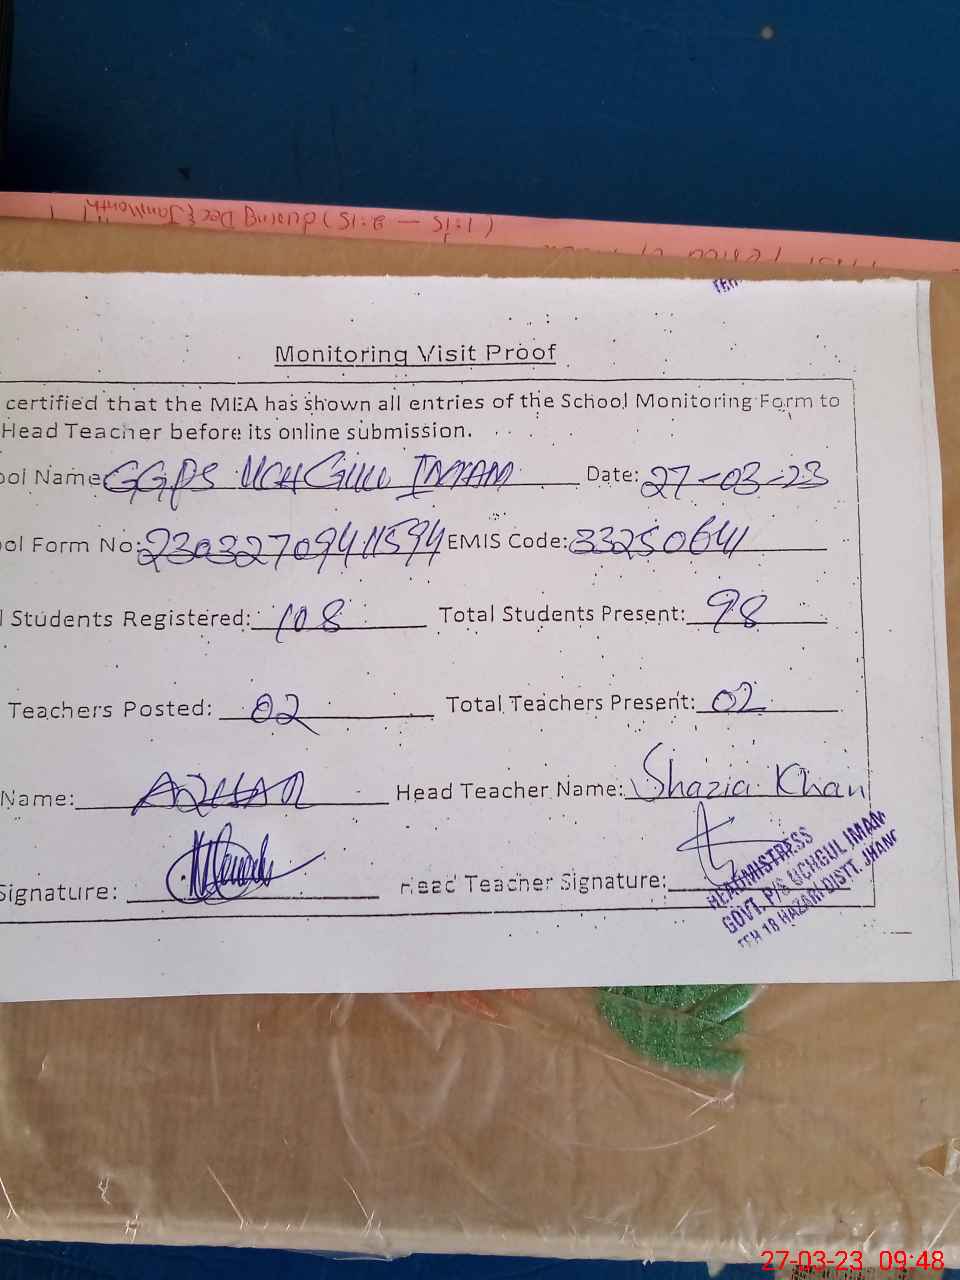 (1:15 — 2:15) during Dec & Jan Month
Monitoring Visit Proof
certified that the MEA has shown all entries of the School Monitoring Form to
Head Teacher before its online submission.
ool Name GGPS UCH GULL IMAM Date: 27-03-23
ool Form No: 23032709411594 EMIS Code: 33250641
l Students Registered: 108 Total Students Present: 98
Teachers Posted: 02 Total Teachers Present: 02
Name: AZHAR Head Teacher Name: Shazia Khan
Signature: Head Teacher Signature:
HEADMISTRESS
GOVT. P/S UCHGUL IMAM
TEH 18 HAZARI DISTT. JHANG
27-03-23 09:48